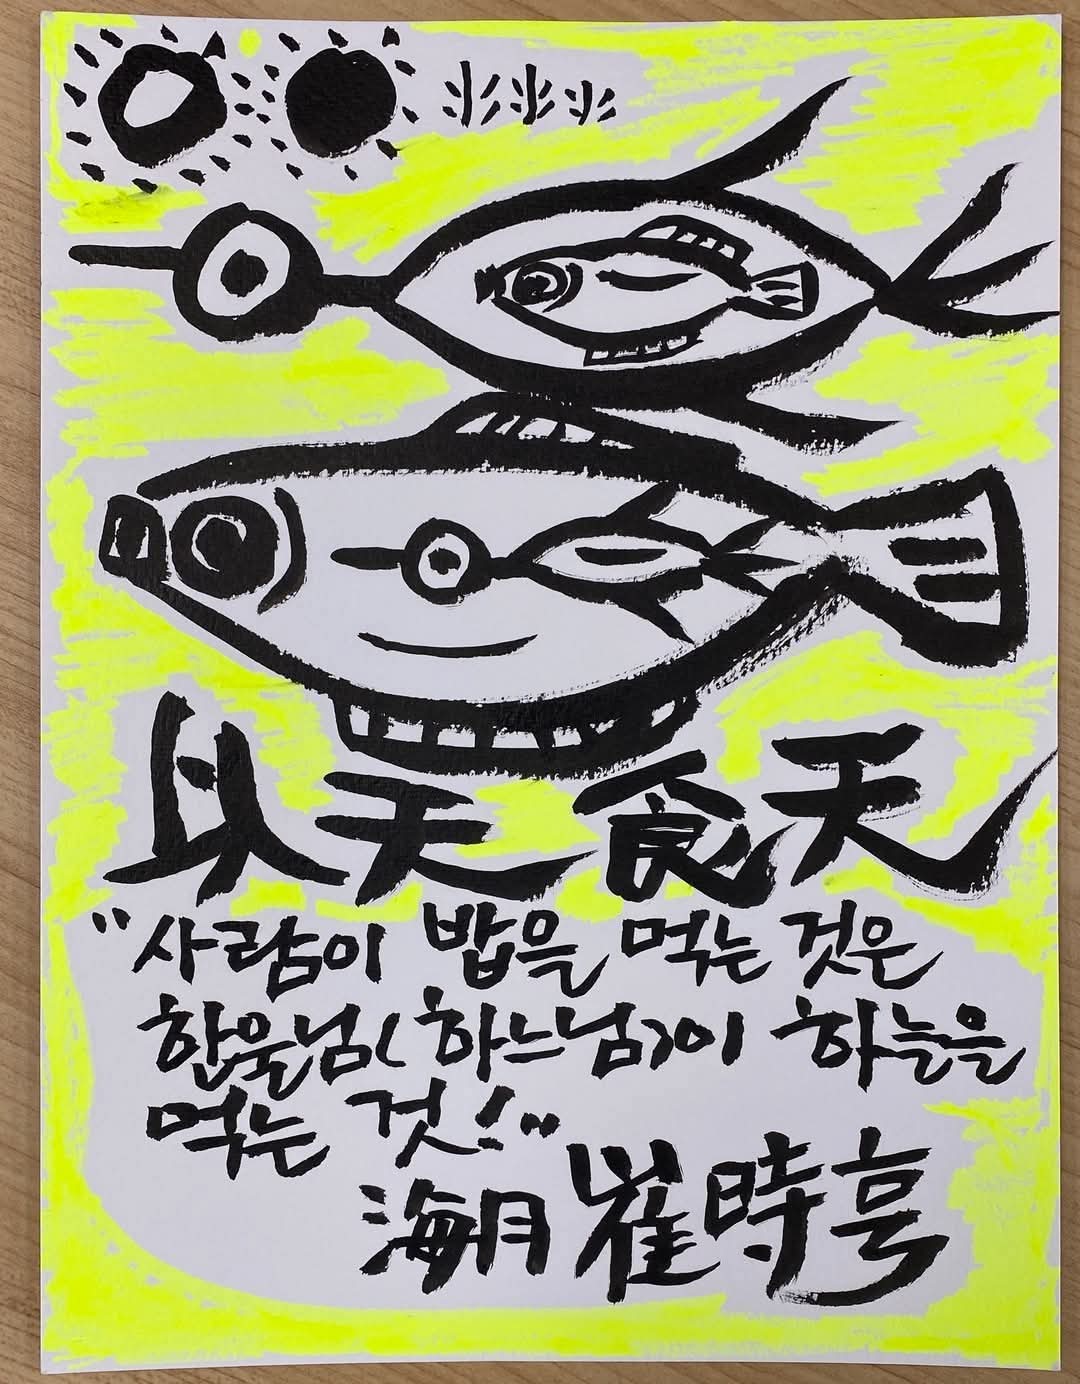 以天食天
"사람이 밥을 먹는 것은
한울님(하느님)이 하늘을
먹는 것!"
海月 崔時亨